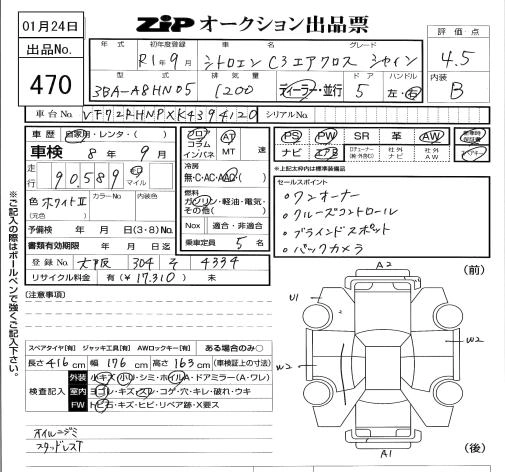 01月24日
ZiP オークション出品票
出品No.
470
年式 初年度登録 車名 グレード
R1年9月 シトロエン C3エアクロス シャイン
型式 排気量 ドア ハンドル
3BA-A8HN05 1200 ディーラー・並行 5 左・右
評価点
4.5
内装
B
車台No. VF72RHNPXK4394120 シリアルNo.
車歴 自家用・レンタ・( )
車検 8年9月
走行 90,589 km マイル
色 ホワイトⅡ カラーNo. 内装色
(元色)
予備検 年 月 日(3・8)No.
書類有効期限 年 月 日迄
登録No. 大阪 304 そ 4334
リサイクル料金 有(¥17,310) 未
フロア コラム インパネ AT MT 速
冷房
無・C・AC・AAC
燃料
ガソリン・軽油・電気・その他( )
Nox 適合・非適合
乗車定員 5名
PS PW SR 革 AW 新車時保証書
ナビ エアB ロナェーナー(純・外含む) 社外AW 社外H 記ノオキー
*上記太枠内は標準装備品
セールスポイント
・ワンオーナー
・クルーズコントロール
・ブラインドスポット
・バックカメラ
(注意事項)
スペアタイヤ[有] ジャッキ工具[有] AWロックキー[有] ある場合のみ〇
長さ416cm 幅176cm 高さ163cm (車検証上の寸法)
検査記入
外装 小キズ・小U・シミ・ホイルA・ドアミラー(A・ワレ)
室内 ヨゴレ・キズ・スレ・コゲ・穴・キレ・破れ・ウキ
FW トビ石・キズ・ヒビ・リペア跡・X要ス
オイルニジミ
スタッドレスT
※ご記入の際はボールペンで強くご記入下さい。
A2 (前)
U1
W2 W2
A1 (後)